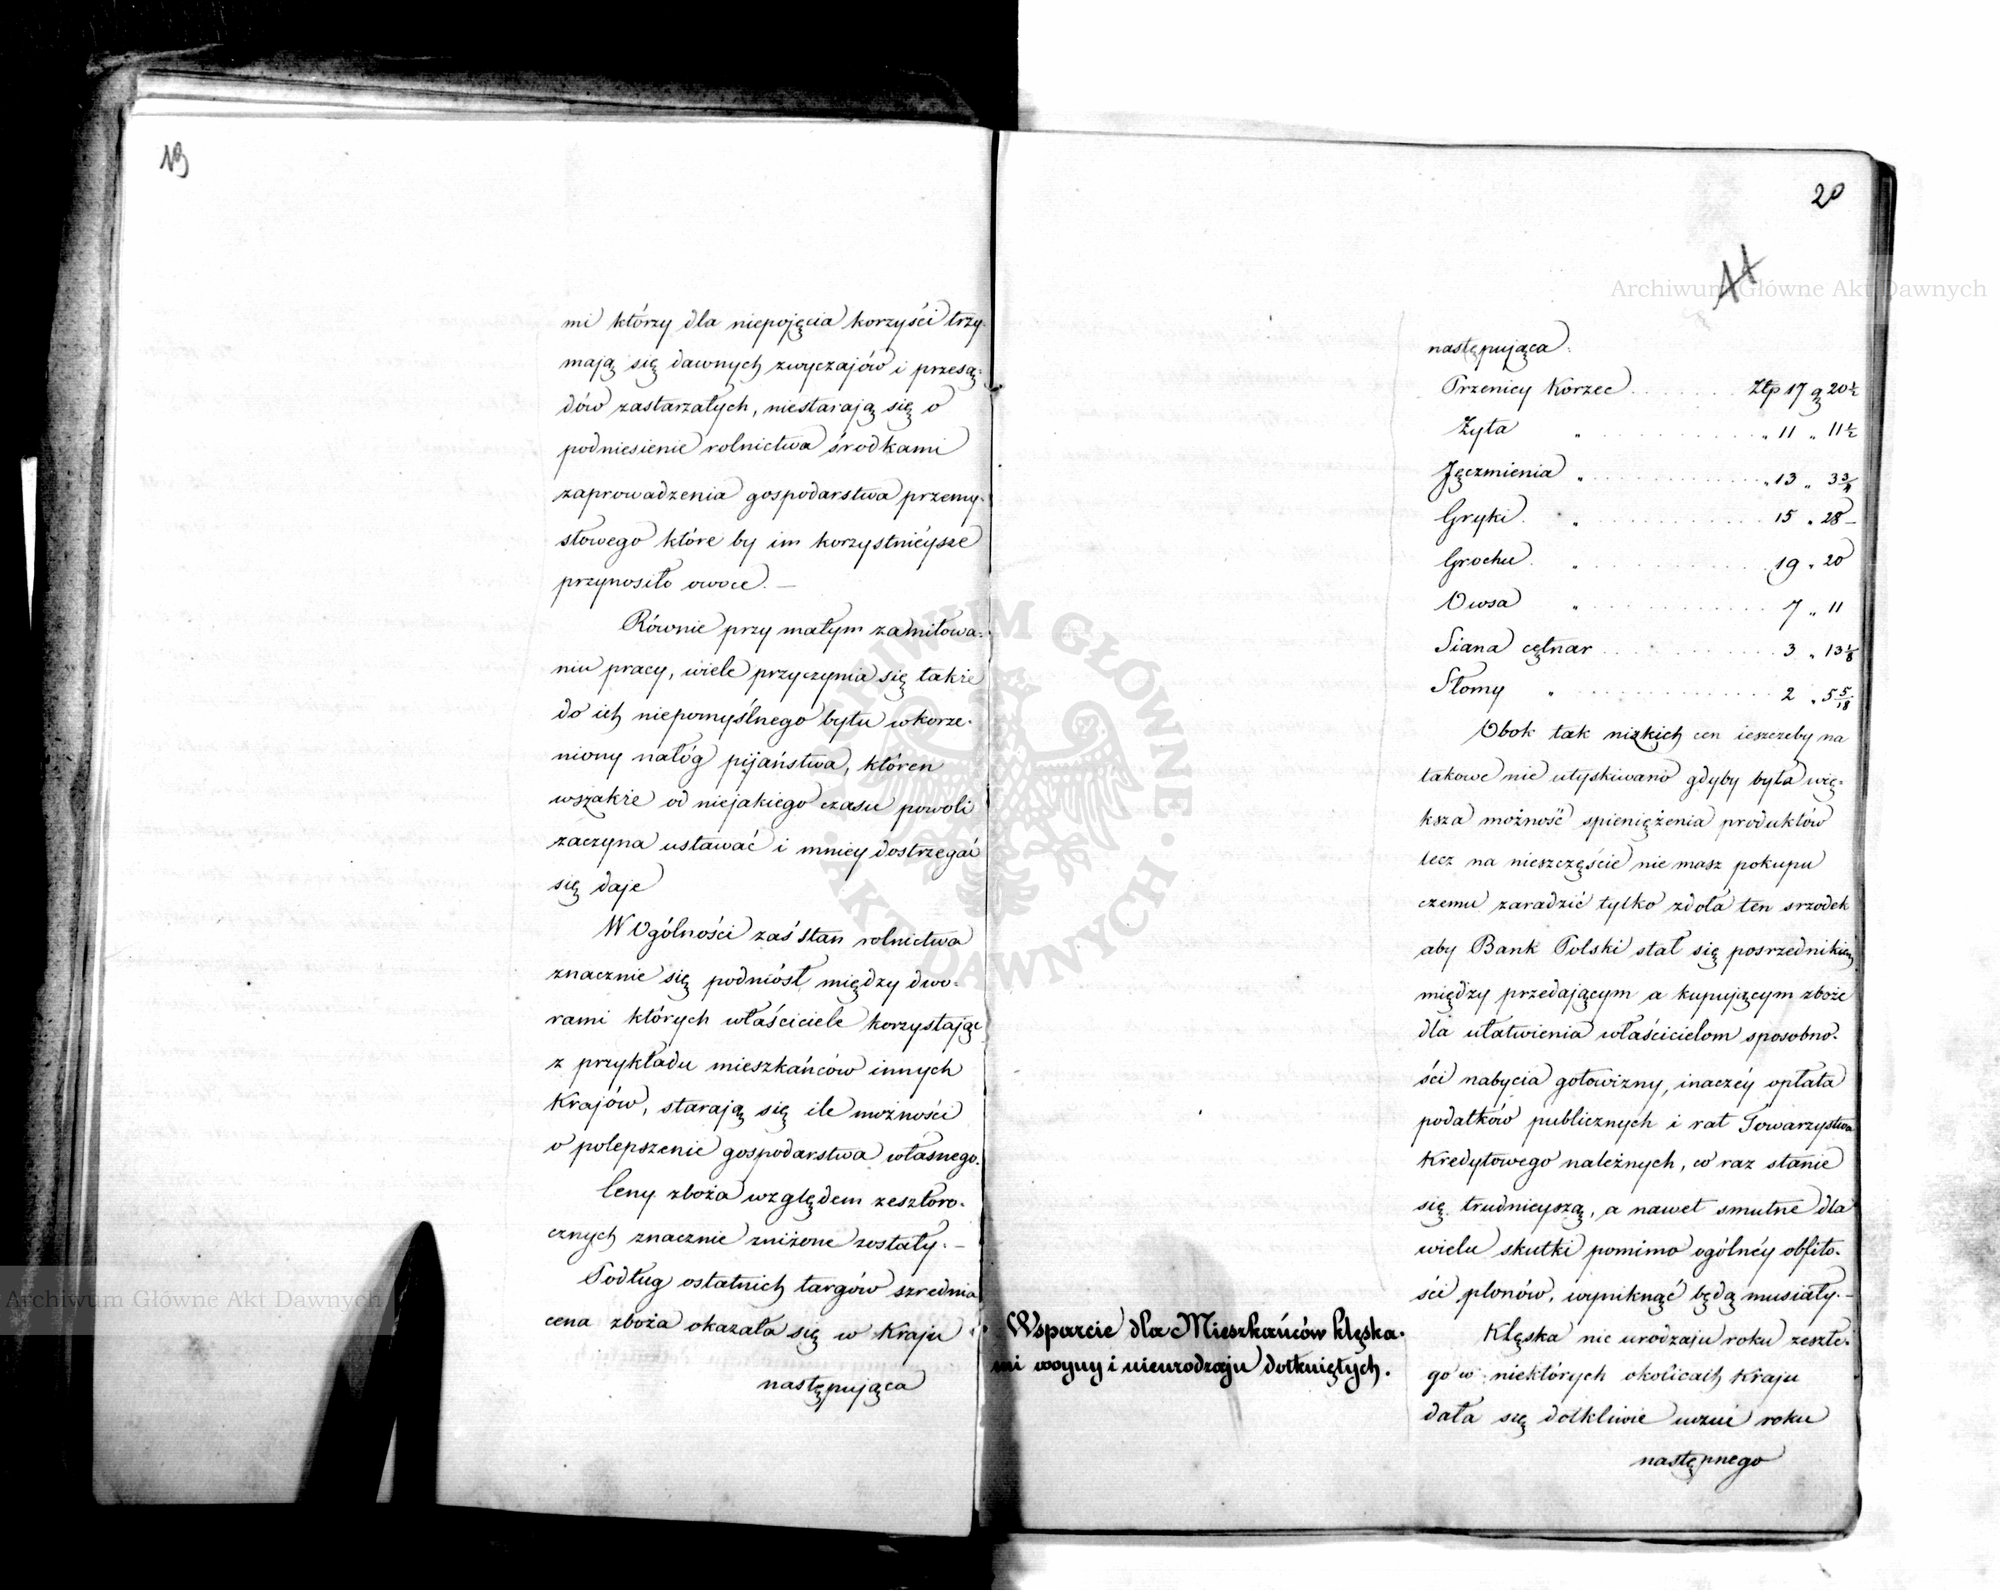 13
mi którzy dla niepojęcia korzyści trzy-
mają się dawnych zwyczajów i przesą-
dów zastarzałych, niestarają się o
podniesienie rolnictwa środkami
zaprowadzenia gospodarstwa przemy-
słowego które by im korzystnieysze
przynosiło owoce. —
Równie przy małym zamiłowa-
niu pracy, wiele przyczynia się także
do ich niepomyślnego bytu wkorze-
niony nałóg pijaństwa, któren
wszakże od niejakiego czasu powoli
zaczyna ustawać i mniey dostrzegać
się daje
W Ogólności zaś stan rolnictwa
znacznie się podniósł między dwo-
rami których właściciele korzystając
z przykładu mieszkańców innych
Krajów, starają się ile możności
o polepszenie gospodarstwa własnego.
Ceny zboża względem zeszłoro-
cznych znacznie zniżone zostały. —
Podług ostatnich targów szrednia
cena zboża okazała się w Kraju
następująca
20
następująca:
Przenicy Korzec . . . . . . . Złp 17 g 20½
Żyta " . . . . . . . . . . . " 11 " 11½
Jęczmienia " . . . . . . . . . . . " 13 " 3¾
Gryki " . . . . . . . . . . . 15 " 28 –
Grochu " . . . . . . . . . . . 19 " 20
Owsa " . . . . . . . . . . . 7 " 11
Siana cętnar . . . . . . . . . . . 3 " 13⅛
Słomy " . . . . . . . . . . . 2 " 5 5/18
Obok tak nizkich cen ieszczeby na
takowe nie utyskiwano gdyby była wię-
ksza możność spieniężenia produktów
lecz na nieszczęście nie masz pokupu
czemu zaradzić tylko zdoła ten srzodek
aby Bank Polski stał się posrzednikiem
między przedającym a kupującym zboże
dla ułatwienia właścicielom sposobno-
ści nabycia gotowizny, inaczéy opłata
podatków publicznych i rat Towarzystwa
Kredytowego należnych, co raz stanie
się trudnieyszą, a nawet smutne dla
wielu skutki pomimo ogólnéy obfito-
ści plonów, wyniknąć będą musiały. —
Wsparcie dla Mieszkańców klęska-
mi woyny i nieurodzaju dotkniętych.
Klęska nie urodzaju roku zeszłe-
go w niektórych okolicach Kraju
dała się dotkliwie uczuć roku
następnego
Archiwum Główne Akt Dawnych
ARCHIWUM GŁÓWNE · AKT DAWNYCH ·
Archiwum Główne Akt Dawnych